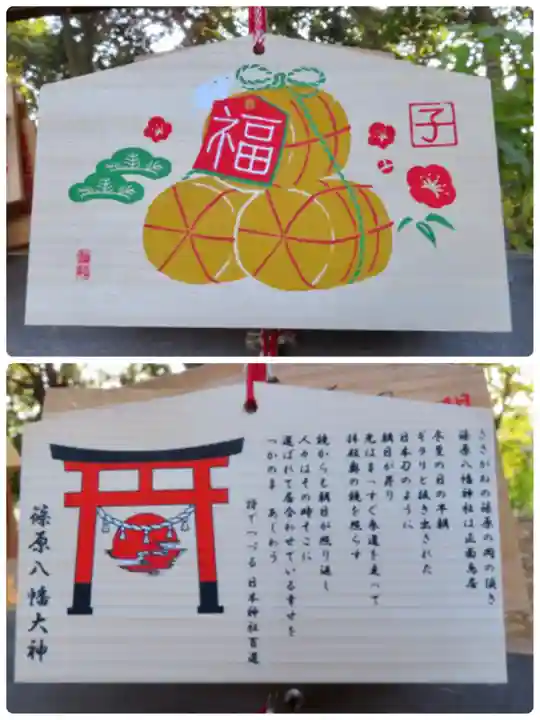 福
子
ささがねの篠原の岡の頂き
篠原八幡神社は正面鳥居
冬至の日の早朝
ギラリと抜き出された
日本刀のように
朝日が昇り
光はまっすぐ参道を走って
拝殿奥の鏡を照らす
鏡からも朝日が照り返し
人々はその時そこに
選ばれて居合わせている幸せを
つかのま あじわう
詩でつづる 日本神社百選
篠原八幡大神